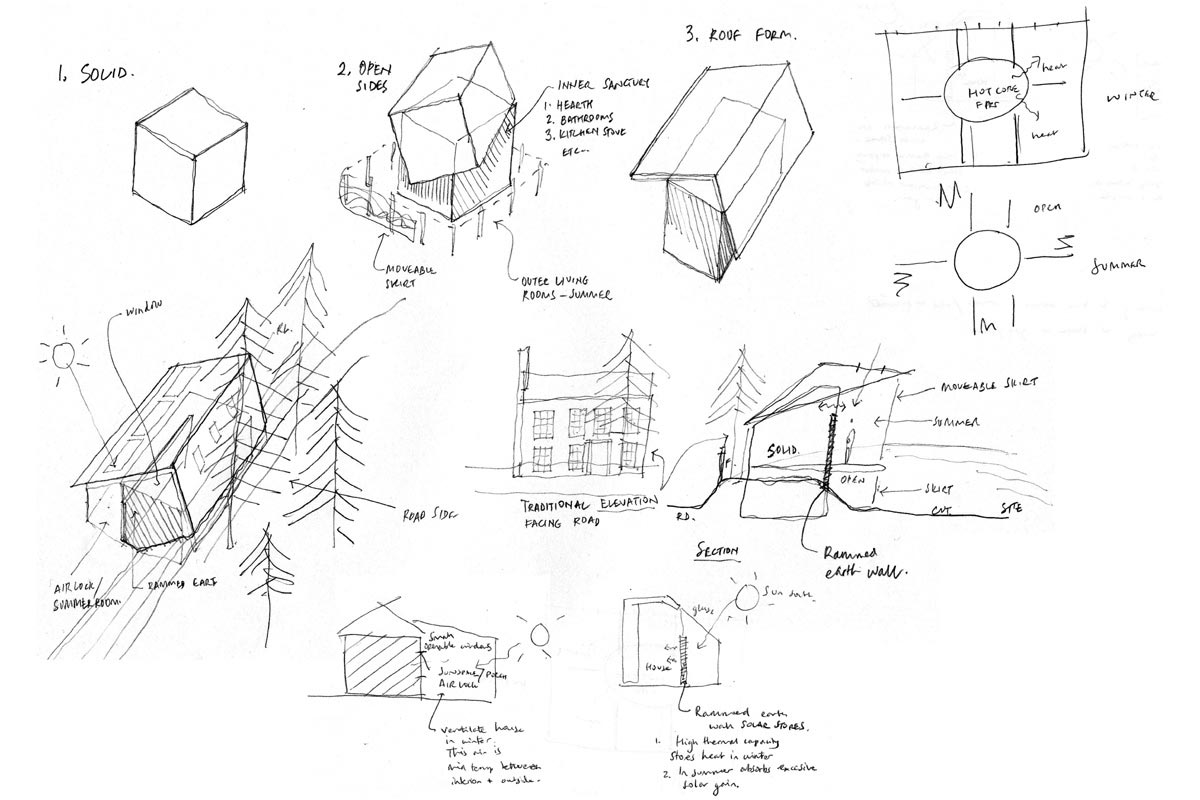 1. SOLID.
2. OPEN
SIDES
INNER SANCTURY
1. HEARTH
2. BATHROOMS
3. KITCHEN STOVE
ETC...
MOVEABLE
SKIRT
OUTER LIVING
ROOMS - SUMMER
3. ROOF FORM.
HOT CORE
heat
heat
WINTER
OPEN
SUMMER
WINDOW
RD.
ROAD SIDE
AIR LOCK/
SUMMER ROOM.
RAMMED EARTH
TRADITIONAL ELEVATION
FACING ROAD
RD.
SOLID.
OPEN
MOVEABLE SKIRT
SUMMER
SKIRT
CUT
SITE
SECTION
Rammed
earth wall.
Small
openable windows
SUNSPACE/PORCH
AIR LOCK
ventilate house
in winter.
This air is
mid temp between
interior + outside.
glass
HOUSE
Rammed earth
wall SOLAR STORES.
1. High thermal capacity
stores heat in winter
2. In summer absorbs excessive
solar gain.